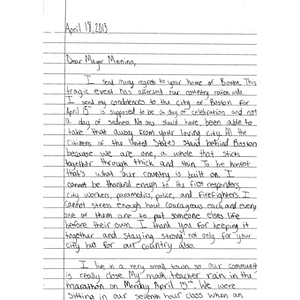 April 18, 2013
Dear Mayor Menino,
I send many regrets to your home of Boston. This
tragic event has affected our country nation wide.
I send my condolences to the city of Boston for
April 15th is supposed to be a day of celebration and not
a day of sadness. No one should have been able to
take that away from your loving city. All the
citizens of the United States stand behind Boston
because we are one, a whole that stick
together through thick and thin. To be honest
that's what our country is built on. I
cannot be thankful enough to the first responders,
city workers, paramedics, police, and firefighters. I
cannot stress enough how courageous each and every
one of them are to put someone elses life
before their own. I thank you for keeping it
together and staying strong not only for your
city but for our country also.
I live in a very small town so our community
is really close. My math teacher ran in the
marathon on Monday April 15th. We were
sitting in our seventh hour class when an